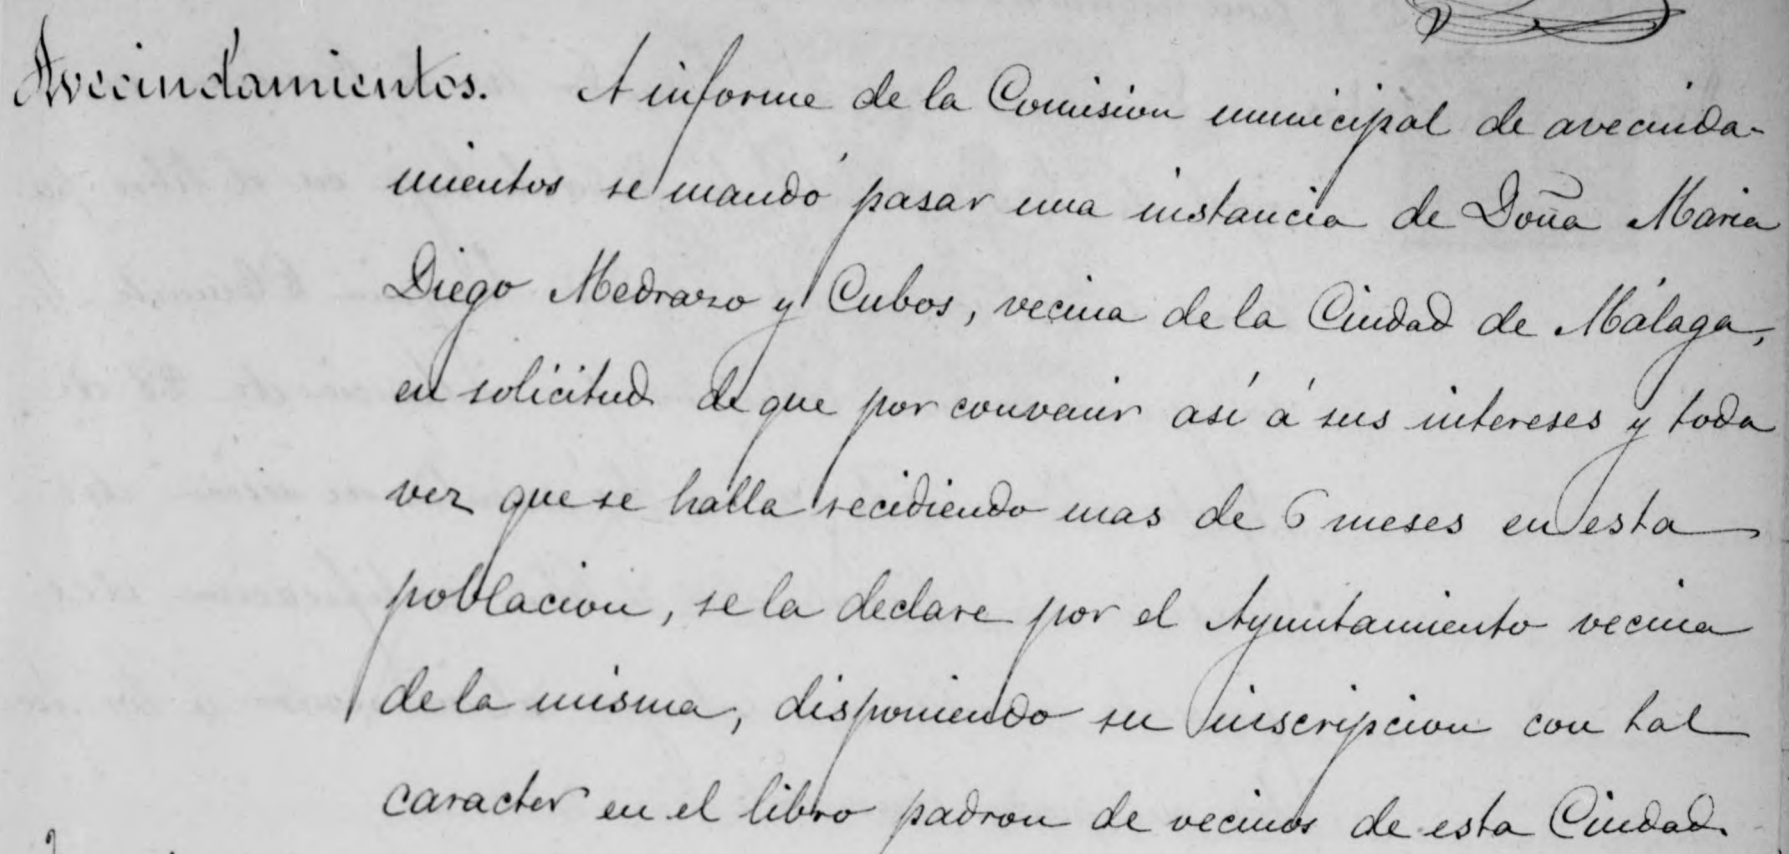 Avecindamientos. A informe de la Comision municipal de avecinda-
mientos se mandó pasar una instancia de Doña Maria
Diego Medrano y Cubos, vecina de la Ciudad de Málaga,
en solicitud de que por convenir así á sus intereses y toda
vez que se halla recidiendo mas de 6 meses en esta
poblacion, se la declare por el Ayuntamiento vecina
de la misma, disponiendo su inscripcion con tal
caracter en el libro padron de vecinos de esta Ciudad.